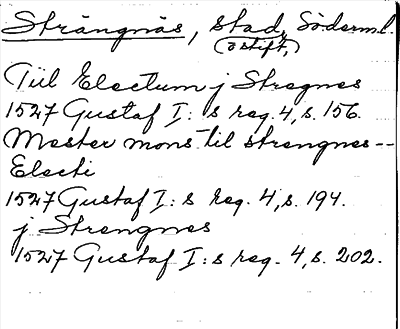 Strängnäs, stad, Söderml.
(o stift,)
Till Electum j Stregnes
1527 Gustaf I: s reg. 4, s. 156.
Mester mons til strengnes --
Electi
1527 Gustaf I: s reg. 4, s. 194.
j Strengnes
1527 Gustaf I: s reg. 4, s. 202.